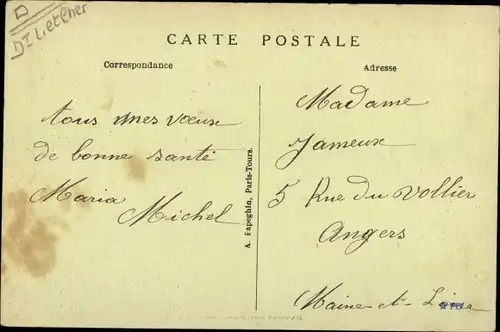 D
CARTE POSTALE
Correspondance
Adresse
tous mes vœux
de bonne santé
Maria
Michel
A. Papeghin, Paris-Tours.
Madame
Jameux
5 Rue du Vollier
Angers
Maine-et-Loire